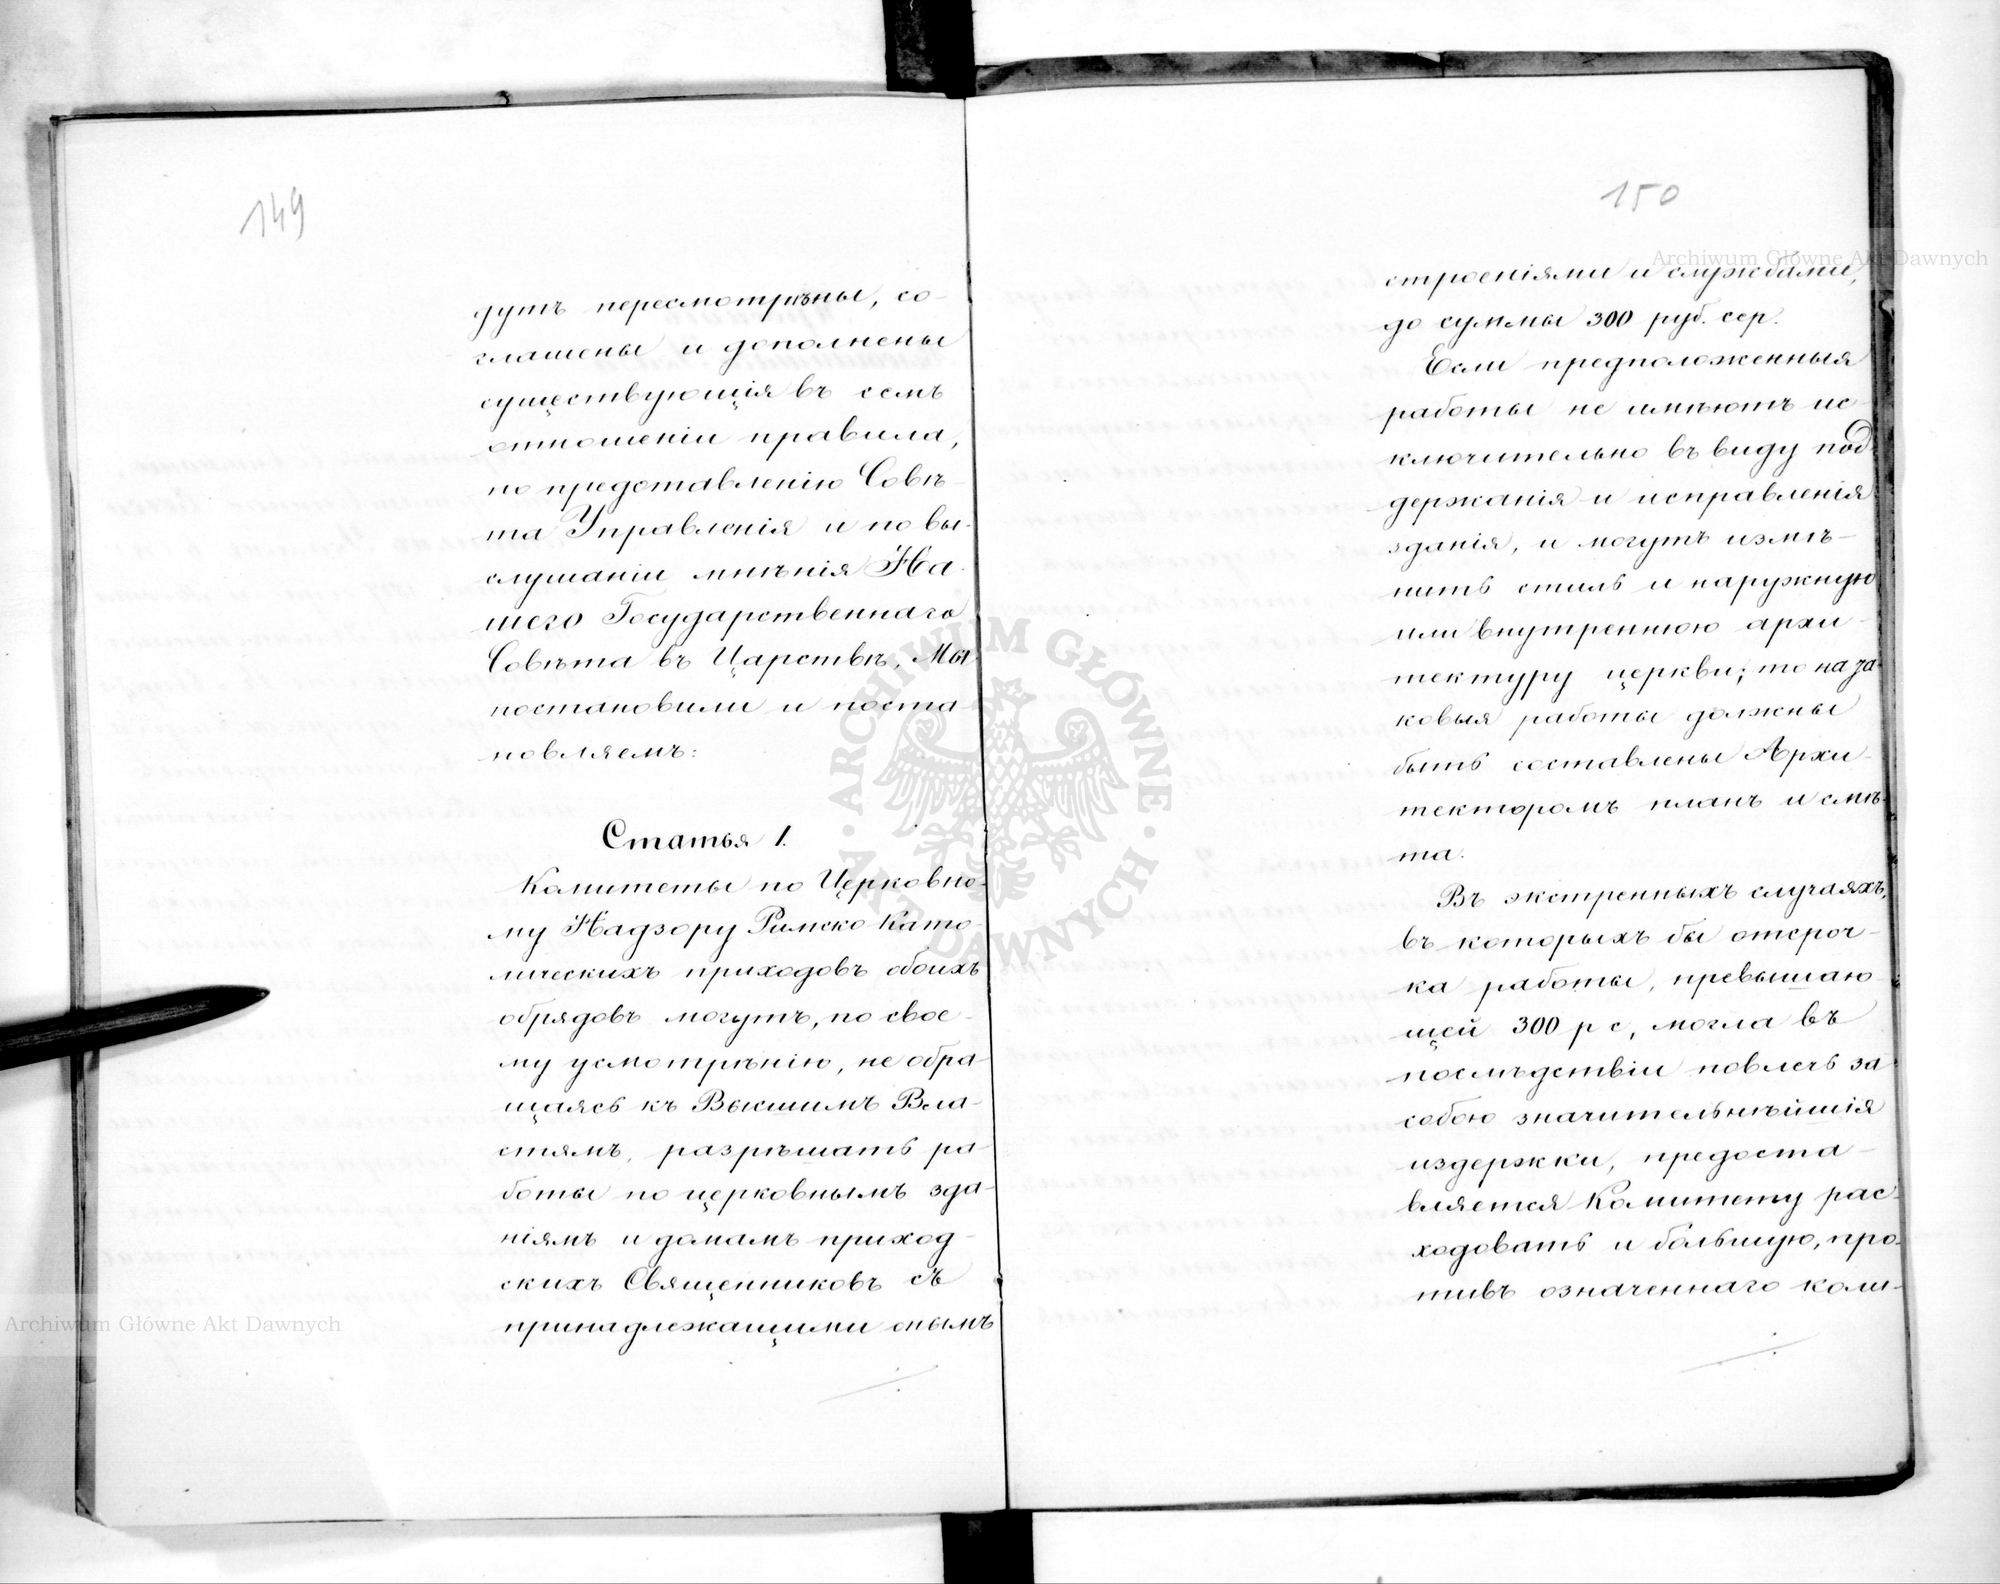 149
дутъ пересмотрѣны, со-
глашены и дополнены
существующія въ семъ
отношеніи правила,
по представленію Совѣ-
та Управленія и по вы-
слушаніи мнѣнія На-
шего Государственнаго
Совѣта въ Царствѣ, Мы
постановили и поста-
новляемъ:
Статья 1.
Комитеты по Церковно-
му Надзору Римско-Като-
лическихъ приходовъ обоихъ
обрядовъ могутъ, по свое-
му усмотрѣнію, не обра-
щаясь къ Высшимъ Вла-
стямъ, разрѣшать ра-
боты по церковнымъ зда-
ніямъ и домамъ приход-
скихъ Священниковъ съ
принадлежащими онымъ
150
строеніями и службами,
до суммы 300 руб. сер.
Если предположенныя
работы не имѣютъ ис-
ключительно въ виду под-
держанія и исправленія
зданія, и могутъ измѣ-
нить стиль и наружную
или внутреннюю архи-
тектуру церкви; то на та-
ковыя работы должны
быть составлены Архи-
текторомъ планъ и смѣ-
та.
Въ экстренныхъ случаяхъ,
въ которыхъ бы отсроч-
ка работы, превышаю-
щей 300 р с, могла въ
послѣдствіи повлечь за
собою значительнѣйшія
издержки, предоста-
вляется Комитету рас-
ходовать и большую, про-
тивъ означеннаго коли-
Archiwum Główne Akt Dawnych
Archiwum Główne Akt Dawnych
ARCHIWUM GŁÓWNE AKT DAWNYCH